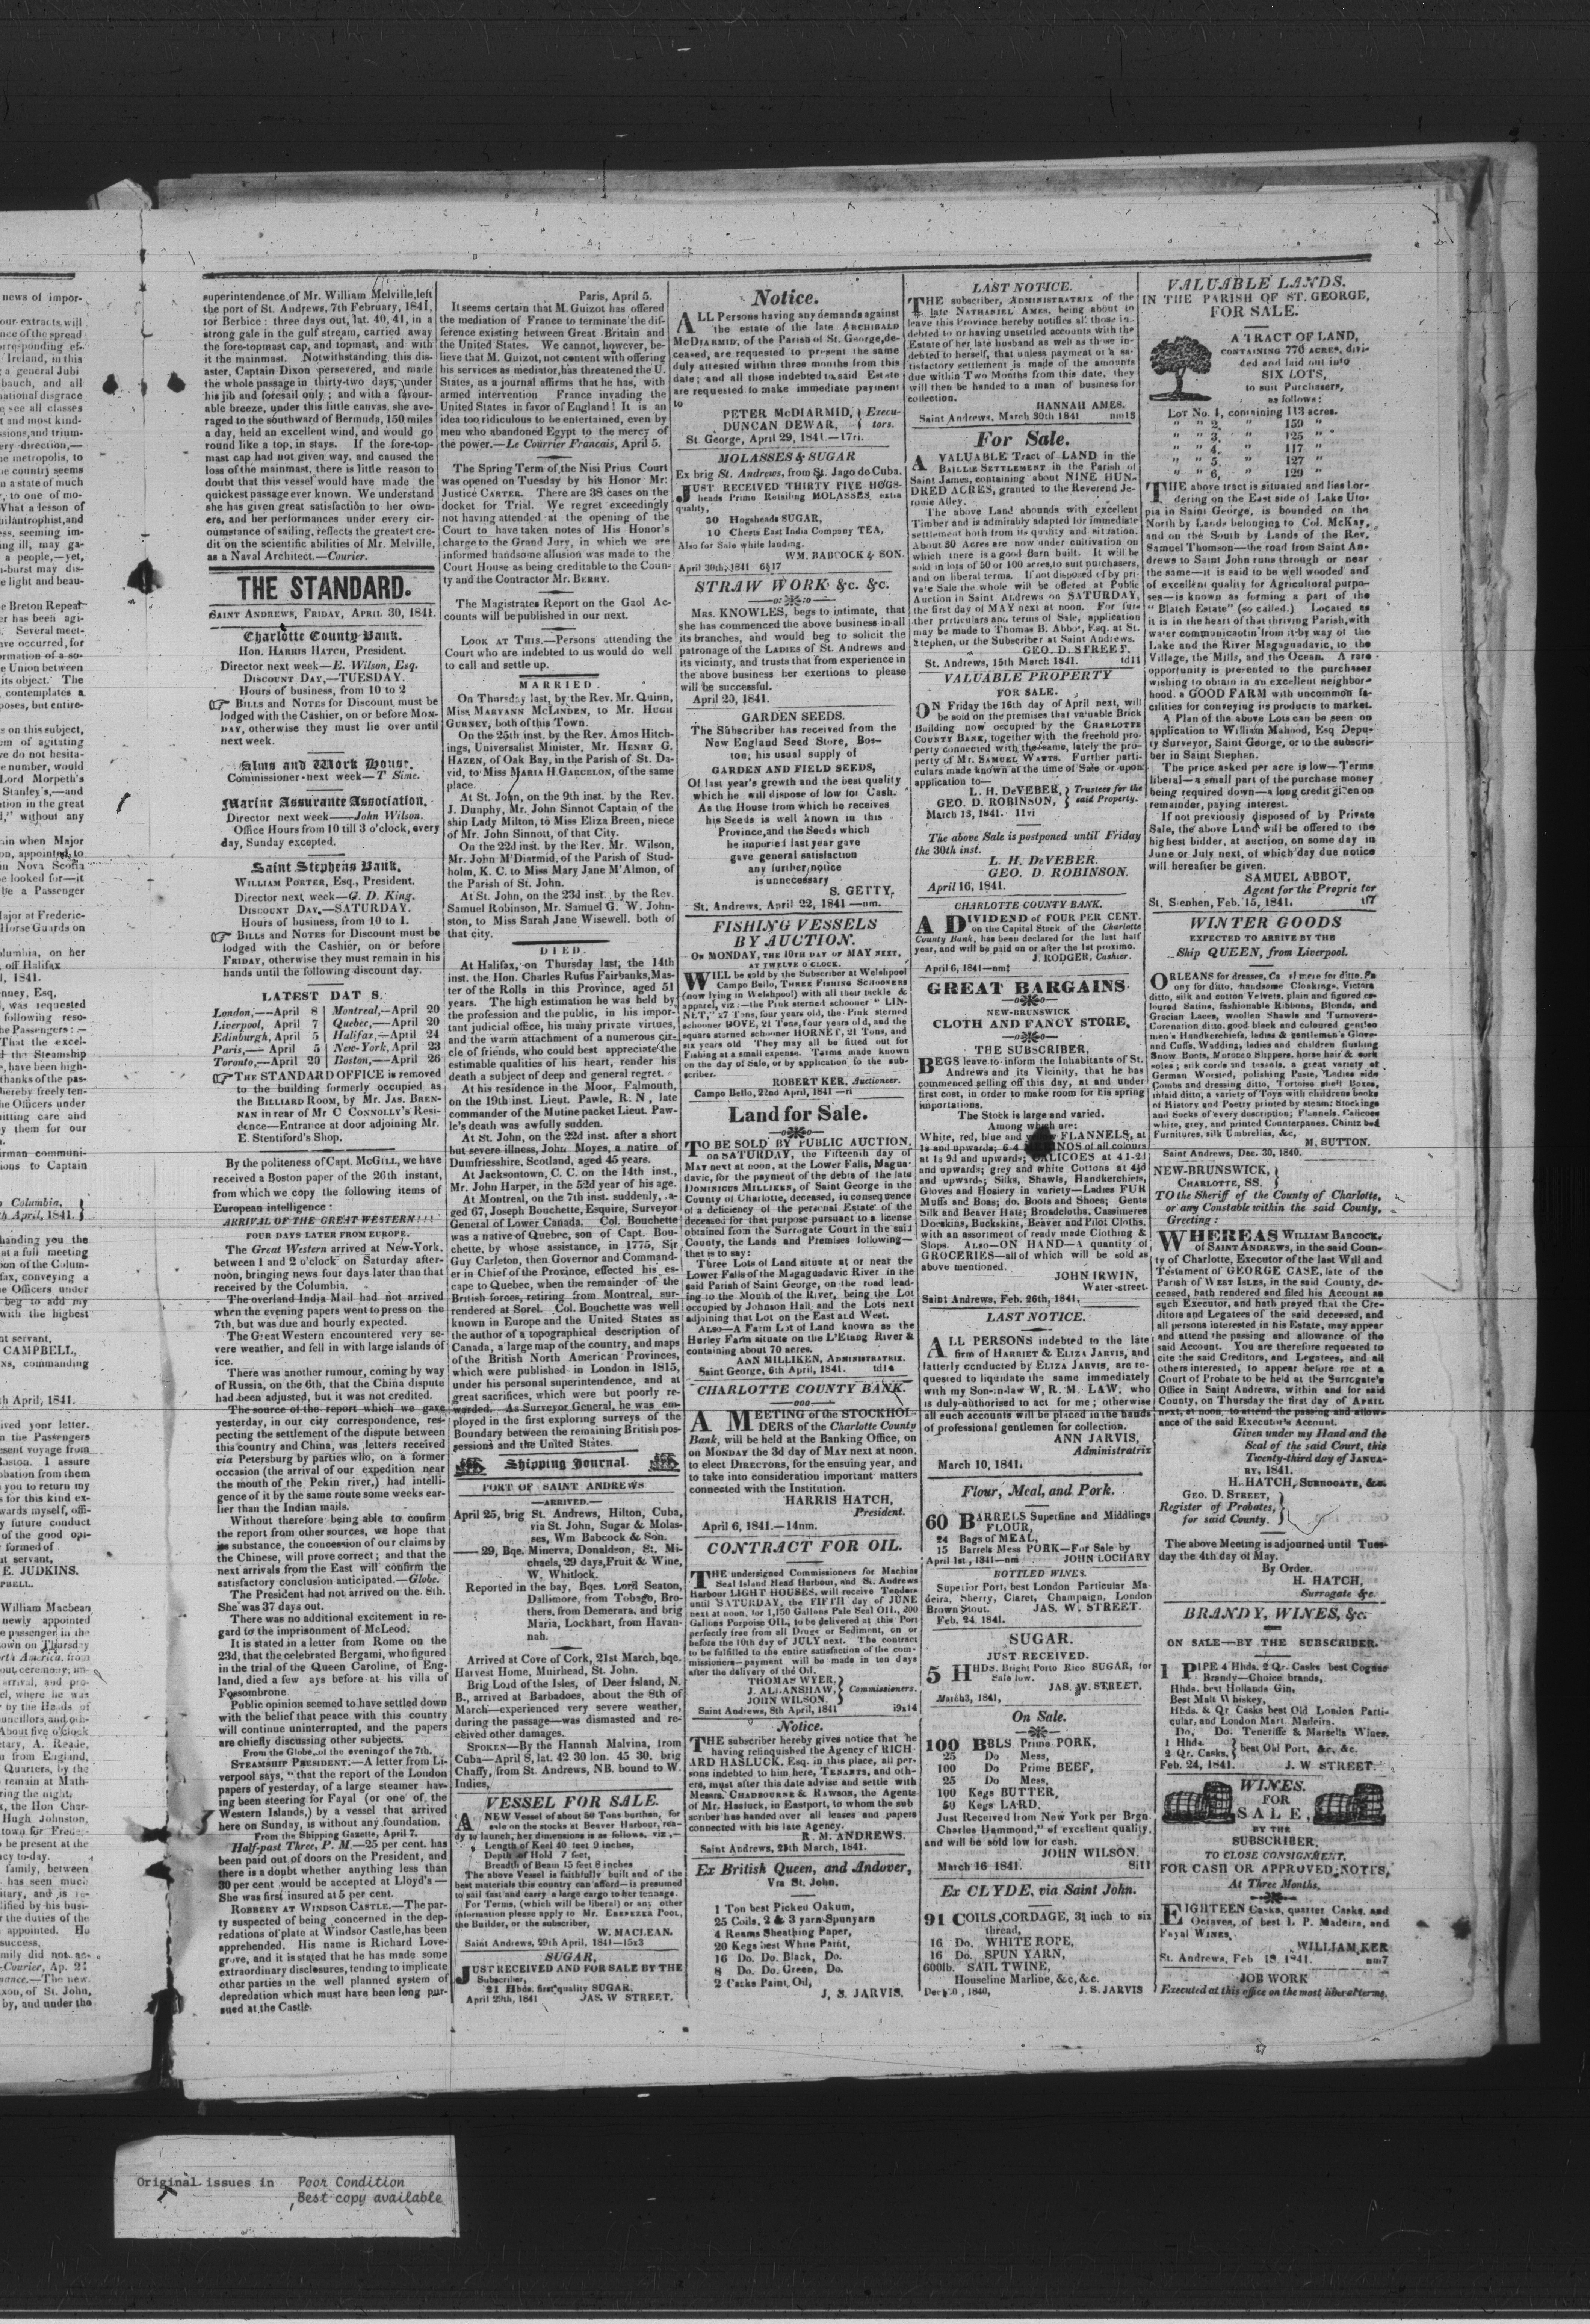 superintendence of Mr. William Melville, left
the port of St. Andrews, 7th February, 1841,
for Berbice: three days out, lat. 40, 41, in a
strong gale in the gulf stream, carried away
the fore-topmast cap, and topmast, and with
it the mainmast. Notwithstanding this dis-
aster, Captain Dixon persevered, and made
the whole passage in thirty-two days, under
his jib and foresail only; and with a favour-
able breeze, under this little canvas, she ave-
raged to the southward of Bermuda, 150 miles
a day, held an excellent wind, and would go
round like a top, in stays. If the fore-top-
mast cap had not given way, and caused the
loss of the mainmast, there is little reason to
doubt that this vessel would have made the
quickest passage ever known. We understand
she has given great satisfaction to her own-
ers, and her performances under every cir-
cumstance of sailing, reflects the greatest cre-
dit on the scientific abilities of Mr. Melville,
as a Naval Architect.—Courier.
THE STANDARD.
SAINT ANDREWS, FRIDAY, APRIL 30, 1841.
Charlotte County Bank.
Hon. HARRIS HATCH, President.
Director next week—E. Wilson, Esq.
DISCOUNT DAY,—TUESDAY.
Hours of business, from 10 to 2
BILLS and NOTES for Discount must be
lodged with the Cashier, on or before MON-
DAY, otherwise they must lie over until
next week.
Alms and Work House.
Commissioner next week—T Sime.
Marine Assurance Association.
Director next week—John Wilson.
Office Hours from 10 till 3 o'clock, every
day, Sunday excepted.
Saint Stephens Bank.
WILLIAM PORTER, Esq., President.
Director next week—G. D. King.
DISCOUNT DAY,—SATURDAY.
Hours of business, from 10 to 1.
BILLS and NOTES for Discount must be
lodged with the Cashier, on or before
FRIDAY, otherwise they must remain in his
hands until the following discount day.
LATEST DAT S.
London,—April 8 | Montreal,—April 20
Liverpool, April 7 | Quebec,—April 20
Edinburgh, April 5 | Halifax,—April 24
Paris,—April 5 | New-York, April 23
Toronto,—April 20 | Boston,—April 26
THE STANDARD OFFICE is removed
to the building formerly occupied as
the BILLIARD ROOM, by Mr. JAS. BREN-
NAN in rear of Mr C CONNOLLY's Resi-
dence—Entrance at door adjoining Mr.
E. Stentiford's Shop.
By the politeness of Capt. McGILL, we have
received a Boston paper of the 26th instant,
from which we copy the following items of
European intelligence:
ARRIVAL OF THE GREAT WESTERN!!!
FOUR DAYS LATER FROM EUROPE.
The Great Western arrived at New-York.
between 1 and 2 o'clock on Saturday after-
noon, bringing news four days later than that
received by the Columbia.
The overland India Mail had not arrived
when the evening papers went to press on the
7th, but was due and hourly expected.
The Great Western encountered very se-
vere weather, and fell in with large islands of
ice.
There was another rumour, coming by way
of Russia, on the 6th, that the China dispute
had been adjusted, but it was not credited.
The source of the report which we gave
yesterday, in our city correspondence, res-
pecting the settlement of the dispute between
this country and China, was letters received
via Petersburg by parties who, on a former
occasion (the arrival of our expedition near
the mouth of the Pekin river,) had intelli-
gence of it by the same route some weeks ear-
lier than the Indian mails.
Without therefore being able to confirm
the report from other sources, we hope that
its substance, the concession of our claims by
the Chinese, will prove correct; and that the
next arrivals from the East will confirm the
satisfactory conclusion anticipated.—Globe.
The President had not arrived on the 8th.
She was 37 days out.
There was no additional excitement in re-
gard to the imprisonment of McLeod.
It is stated in a letter from Rome on the
23d, that the celebrated Bergami, who figured
in the trial of the Queen Caroline, of Eng-
land, died a few ays before at his villa of
Fossombrone
Public opinion seemed to have settled down
with the belief that peace with this country
will continue uninterrupted, and the papers
are chiefly discussing other subjects.
From the Globe, of the evening of the 7th.
STEAMSHIP PRESIDENT:—A letter from Li-
verpool says, "that the report of the London
papers of yesterday, of a large steamer hav-
ing been steering for Fayal (or one of the
Western Islands,) by a vessel that arrived
here on Sunday, is without any foundation.
From the Shipping Gazette, April 7.
Half-past Three, P. M.—25 per cent. has
been paid out of doors on the President, and
there is a doubt whether anything less than
30 per cent would be accepted at Lloyd's—
She was first insured at 5 per cent.
ROBBERY AT WINDSOR CASTLE.—The par-
ty suspected of being concerned in the dep-
redations of plate at Windsor Castle, has been
apprehended. His name is Richard Love-
grove, and it is stated that he has made some
extraordinary disclosures, tending to implicate
other parties in the well planned system of
depredation which must have been long pur-
sued at the Castle.
Paris, April 5.
It seems certain that M. Guizot has offered
the mediation of France to terminate the dif-
ference existing between Great Britain and
the United States. We cannot, however, be-
lieve that M. Guizot, not content with offering
his services as mediator, has threatened the U.
States, as a journal affirms that he has, with
armed intervention France invading the
United States in favor of England! It is an
idea too ridiculous to be entertained, even by
men who abandoned Egypt to the mercy of
the power.—Le Courrier Francais, April 5.
The Spring Term of the Nisi Prius Court
was opened on Tuesday by his Honor Mr.
Justice CARTER. There are 38 cases on the
docket for Trial. We regret exceedingly
not having attended at the opening of the
Court to have taken notes of His Honor's
charge to the Grand Jury, in which we are
informed handsome allusion was made to the
Court House as being creditable to the Coun-
ty and the Contractor Mr. BERRY.
The Magistrates Report on the Gaol Ac-
counts will be published in our next.
LOOK AT THIS.—Persons attending the
Court who are indebted to us would do well
to call and settle up.
MARRIED.
On Thursday last, by the Rev. Mr. Quinn,
Miss MARYANN McLINDEN, to Mr. HUGH
GURNEY, both of this Town.
On the 25th inst. by the Rev. Amos Hitch-
ings, Universalist Minister, Mr. HENRY G.
HAZEN, of Oak Bay, in the Parish of St. Da-
vid, to Miss MARIA H. GARCELON, of the same
place.
At St. John, on the 9th inst. by the Rev.
J. Dunphy, Mr. John Sinnot Captain of the
ship Lady Milton, to Miss Eliza Breen, niece
of Mr. John Sinnott, of that City.
On the 22d inst. by the Rev. Mr. Wilson,
Mr. John M'Diarmid, of the Parish of Stud-
holm, K. C. to Miss Mary Jane M'Almon, of
the Parish of St. John.
At St. John, on the 23d inst. by the Rev.
Samuel Robinson, Mr. Samuel G. W. John-
ston, to Miss Sarah Jane Wisewell. both of
that city.
DIED.
At Halifax, on Thursday last, the 14th
inst. the Hon. Charles Rufus Fairbanks, Mas-
ter of the Rolls in this Province, aged 51
years. The high estimation he was held by
the profession and the public, in his impor-
tant judicial office, his many private virtues,
and the warm attachment of a numerous cir-
cle of friends, who could best appreciate the
estimable qualities of his heart, render his
death a subject of deep and general regret.
At his residence in the Moor, Falmouth,
on the 19th inst. Lieut. Pawle, R. N, late
commander of the Mutine packet Lieut. Paw-
le's death was awfully sudden.
At St. John, on the 22d inst. after a short
but severe illness, John Moyes, a native of
Dumfriesshire, Scotland, aged 45 years.
At Jacksontown, C. C. on the 14th inst.,
Mr. John Harper, in the 52d year of his age.
At Montreal, on the 7th inst. suddenly, a-
ged 67, Joseph Bouchette, Esquire, Surveyor
General of Lower Canada. Col. Bouchette
was a native of Quebec, son of Capt. Bou-
chette, by whose assistance, in 1775, Sir
Guy Carleton, then Governor and Command-
er in Chief of the Province, effected his es-
cape to Quebec, when the remainder of the
British forces, retiring from Montreal, sur-
rendered at Sorel. Col. Bouchette was well
known in Europe and the United States as
the author of a topographical description of
Canada, a large map of the country, and maps
of the British North American Provinces,
which were published in London in 1815,
under his personal superintendence, and at
great sacrifices, which were but poorly re-
warded. As Surveyor General, he was em-
ployed in the first exploring surveys of the
Boundary between the remaining British pos-
sessions and the United States.
Shipping Journal.
PORT OF SAINT ANDREWS
—ARRIVED.—
April 25, brig St. Andrews, Hilton, Cuba,
via St. John, Sugar & Molas-
ses, Wm Babcock & Son.
— 29, Bqe. Minerva, Donaldson, St. Mi-
chaels, 29 days, Fruit & Wine,
W. Whitlock.
Reported in the bay, Bqes. Lord Seaton,
Dallimore, from Tobago, Bro-
thers, from Demerara, and brig
Maria, Lockhart, from Havan-
nah.
Arrived at Cove of Cork, 21st March, bqe.
Harvest Home, Muirhead, St. John.
Brig Lord of the Isles, of Deer Island, N.
B., arrived at Barbadoes, about the 8th of
March—experienced very severe weather,
during the passage—was dismasted and re-
ceived other damages.
SPOKEN—By the Hannah Malvina, from
Cuba—April 8, lat. 42 30 lon. 45 30. brig
Chaffy, from St. Andrews, NB. bound to W.
Indies.
VESSEL FOR SALE.
A NEW Vessel of about 50 Tons burthen, for
sale on the stocks at Beaver Harbour, rea-
dy to launch; her dimensions is as follows, viz,—
Length of Keel 40 feet 9 inches,
Depth of Hold 7 feet,
Breadth of Beam 15 feet 8 inches
The above Vessel is faithfully built and of the
best materials this country can afford—is presumed
to sail fast and carry a large cargo to her tonnage.
For Terms, (which will be liberal) or any other
information please apply to Mr. EBENEZER POOL,
the Builder, or the subscriber,
W. MACLEAN.
Saint Andrews, 29th April, 1841—15x3
SUGAR,
JUST RECEIVED AND FOR SALE BY THE
Subscriber,
21 Hhds. first quality SUGAR.
April 29th, 1841 JAS. W STREET.
Notice.
ALL Persons having any demands against
the estate of the late ARCHIBALD
McDIARMID, of the Parish of St. George, de-
ceased, are requested to present the same
duly attested within three months from this
date; and all those indebted to said Estate
are requested to make immediate payment
to
PETER McDIARMID, } Execu-
DUNCAN DEWAR, } tors.
St George, April 29, 1841.—17ri.
MOLASSES & SUGAR
Ex brig St. Andrews, from St. Jago de Cuba.
JUST RECEIVED THIRTY FIVE HOGS-
heads Prime Retailing MOLASSES extra
quality,
30 Hogsheads SUGAR,
10 Chests East India Company TEA,
Also for Sale while landing.
WM. BABCOCK & SON.
April 30th, 1841 6§17
STRAW WORK &c. &c.
MRS. KNOWLES, begs to intimate, that
she has commenced the above business in all
its branches, and would beg to solicit the
patronage of the LADIES of St. Andrews and
its vicinity, and trusts that from experience in
the above business her exertions to please
will be successful.
April 20, 1841.
GARDEN SEEDS.
The Subscriber has received from the
New England Seed Store, Bos-
ton; his usual supply of
GARDEN AND FIELD SEEDS,
Of last year's growth and the best quality
which he will dispose of low for Cash.
As the House from which he receives
his Seeds is well known in this
Province, and the Seeds which
he imported last year gave
gave general satisfaction
any further notice
is unnecessary
S. GETTY,
St. Andrews, April 22, 1841—nm.
FISHING VESSELS
BY AUCTION.
On MONDAY, THE 10TH DAY OF MAY NEXT,
AT TWELVE O'CLOCK.
WILL be sold by the Subscriber at Welshpool
Campo Bello, THREE FISHING SCHOONERS
(now lying in Welshpool) with all their tackle &
apparel, viz:—the Pink sterned schooner "LIN-
NET," 27 Tons, four years old, the Pink sterned
schooner DOVE, 21 Tons, four years old, and the
square sterned schooner HORNET, 21 Tons, and
six years old They may be fitted out for
Fishing at a small expense. Terms made known
on the day of Sale, or by application to the sub-
scriber.
ROBERT KER. Auctioneer.
Campo Bello, 22nd April, 1841—ri
Land for Sale.
TO BE SOLD BY PUBLIC AUCTION,
on SATURDAY, the Fifteenth day of
MAY next at noon, at the Lower Falls, Magua-
davic, for the payment of the debts of the late
DOMINICUS MILLIKEN, of Saint George in the
County of Charlotte, deceased, in consequence
of a deficiency of the personal Estate of the
deceased for that purpose pursuant to a license
obtained from the Surrogate Court in the said
County, the Lands and Premises following—
that is to say:
Three Lots of Land situate at or near the
Lower Falls of the Magaguadavic River in the
said Parish of Saint George, on the road lead-
ing to the Mouth of the River, being the Lot
occupied by Johnson Hall and the Lots next
adjoining that Lot on the East and West.
ALSO—A Farm Lot of Land known as the
Hurley Farm situate on the L'Etang River &
containing about 70 acres.
ANN MILLIKEN, ADMINISTRATRIX.
Saint George, 6th April, 1841. td14
CHARLOTTE COUNTY BANK.
A MEETING of the STOCKHOL-
DERS of the Charlotte County
Bank, will be held at the Banking Office, on
on MONDAY the 3d day of MAY next at noon,
to elect DIRECTORS, for the ensuing year, and
to take into consideration important matters
connected with the Institution.
HARRIS HATCH,
President.
April 6, 1841.—14nm.
CONTRACT FOR OIL.
THE undersigned Commissioners for Machias
Seal Island Head Harbour, and St. Andrews
Harbour LIGHT HOUSES, will receive Tenders
until SATURDAY, the FIFTH day of JUNE
next at noon, for 1,150 Gallons Pale Seal OIL, 200
Gallons Porpoise OIL, to be delivered at this Port
perfectly free from all Drugs or Sediment, on or
before the 10th day of JULY next. The contract
to be fulfilled to the entire satisfaction of the com-
missioners—payment will be made in ten days
after the delivery of the Oil.
THOMAS WYER, }
J. ALLANSHAW, } Commissioners.
JOHN WILSON. }
Saint Andrews, 8th April, 1841 i9x14
Notice.
THE subscriber hereby gives notice that he
having relinquished the Agency of RICH-
ARD HASLUCK, Esq. in this place, all per-
sons indebted to him here, TENANTS, and oth-
ers, must after this date advise and settle with
Messrs. CHADBOURNE & RAWSON, the Agents
of Mr. Hasluck, in Eastport, to whom the sub
scriber has handed over all leases and papers
connected with his late Agency.
R. M. ANDREWS.
Saint Andrews, 25th March, 1841.
Ex British Queen, and Andover,
Via St. John.
1 Ton best Picked Oakum,
25 Coils, 2 & 3 yarn Spunyarn
4 Reams Sheathing Paper,
20 Kegs best White Paint,
16 Do. Do. Black, Do.
8 Do. Do. Green, Do.
2 Casks Paint, Oil,
J. S. JARVIS.
LAST NOTICE.
THE subscriber, ADMINISTRATRIX of the
late NATHANIEL AMES, being about to
leave this Province hereby notifies all those in-
debted to or having unsettled accounts with the
Estate of her late husband as well as those in-
debted to herself, that unless payment or a sa-
tisfactory settlement is made of the amounts
due within Two Months from this date, they
will then be handed to a man of business for
collection.
HANNAH AMES.
Saint Andrews, March 30th 1841 nm13
For Sale.
A VALUABLE Tract of LAND in the
BAILLIE SETTLEMENT in the Parish of
Saint James, containing about NINE HUN-
DRED ACRES, granted to the Reverend Je-
rome Alley.
The above Land abounds with excellent
Timber and is admirably adapted for immediate
settlement both from its quality and situation.
About 30 Acres are now under cultivation on
which there is a good Barn built. It will be
sold in lots of 50 or 100 acres, to suit purchasers,
and on liberal terms. If not disposed of by pri-
vate Sale the whole will be offered at Public
Auction in Saint Andrews on SATURDAY,
the first day of MAY next at noon. For fur-
ther particulars and terms of Sale, application
may be made to Thomas B. Abbot, Esq. at St.
Stephen, or the Subscriber at Saint Andrews.
GEO. D. STREET.
St. Andrews, 15th March 1841. td11
VALUABLE PROPERTY
FOR SALE.
ON Friday the 16th day of April next, will
be sold on the premises that valuable Brick
Building now occupied by the CHARLOTTE
COUNTY BANK, together with the freehold pro-
perty connected with the same, lately the pro-
perty of Mr. SAMUEL WATTS. Further parti-
culars made known at the time of Sale or upon
application to—
L. H. DeVEBER, } Trustees for the
GEO. D. ROBINSON, } said Property.
March 13, 1841. 11vi
The above Sale is postponed until Friday
the 30th inst.
L. H. DeVEBER.
GEO. D. ROBINSON.
April 16, 1841.
CHARLOTTE COUNTY BANK.
A DIVIDEND of FOUR PER CENT.
on the Capital Stock of the Charlotte
County Bank, has been declared for the last half
year, and will be paid on or after the 1st proximo.
J. RODGER, Cashier.
April 6, 1841—nm‡
GREAT BARGAINS
NEW-BRUNSWICK
CLOTH AND FANCY STORE,
THE SUBSCRIBER,
BEGS leave to inform the Inhabitants of St.
Andrews and its Vicinity, that he has
commenced selling off this day, at and under
first cost, in order to make room for his spring
importations.
The Stock is large and varied.
Among which are:
White, red, blue and FLANNELS, at
1s and upwards; 6-4 of all colours
at 1s 9d and upwards; CALICOES at 4 1-2d
and upwards; grey and white Cottons at 4½d
and upwards; Silks, Shawls, Handkerchiefs,
Gloves and Hosiery in variety—Ladies FUR
Muffs and Boas; do. Boots and Shoes; Gents
Silk and Beaver Hats; Broadcloths, Cassimeres
Doeskins, Buckskins, Beaver and Pilot Cloths,
with an assortment of ready made Clothing &
Slops. ALSO—ON HAND—A quantity of
GROCERIES—all of which will be sold as
above mentioned.
JOHN IRWIN,
Water-street.
Saint Andrews, Feb. 26th, 1841.
LAST NOTICE.
ALL PERSONS indebted to the late
firm of HARRIET & ELIZA JARVIS, and
latterly conducted by ELIZA JARVIS, are re-
quested to liquidate the same immediately
with my Son-in-law W. R. M. LAW; who
is duly authorised to act for me; otherwise
all such accounts will be placed in the hands
of professional gentlemen for collection.
ANN JARVIS,
Administratrix
March 10, 1841.
Flour, Meal, and Pork.
60 BARRELS Superfine and Middlings
FLOUR,
24 Bags of MEAL,
15 Barrels Mess PORK—For Sale by
April 1st, 1841—nm JOHN LOCHARY
BOTTLED WINES.
Superior Port, best London Particular Ma-
deira, Sherry, Claret, Champaign, London
Brown Stout. JAS. W. STREET.
Feb. 24, 1841.
SUGAR.
JUST RECEIVED.
5 HHDS. Bright Porto Rico SUGAR, for
Sale low.
JAS. W. STREET.
March 3, 1841,
On Sale.
100 BBLS Prime PORK,
25 Do Mess,
100 Do Prime BEEF,
25 Do Mess,
100 Kegs BUTTER,
50 Kegs LARD.
Just Received from New York per Brgn.
Charles Hammond," of excellent quality.
and will be sold low for cash.
JOHN WILSON.
March 16 1841. 8i11
Ex CLYDE, via Saint John.
91 COILS, CORDAGE, 3½ inch to six
thread,
16 Do. WHITE ROPE,
16 Do. SPUN YARN,
600lb. SAIL TWINE,
Houseline Marline, &c, &c.
1840, J. S. JARVIS
VALUABLE LANDS.
IN THE PARISH OF ST. GEORGE,
FOR SALE.
A TRACT OF LAND,
CONTAINING 770 ACRES, divi-
ded and laid out into
SIX LOTS,
to suit Purchasers,
as follows:
Lot No. 1, containing 113 acres.
" " 2, " 159 "
" " 3, " 125 "
" " 4, " 117 "
" " 5, " 127 "
" " 6, " 129 "
THE above tract is situated and lies bor-
dering on the East side of Lake Uto-
pia in Saint George, is bounded on the
North by Lands belonging to Col. McKay,
and on the South by Lands of the Rev.
Samuel Thomson—the road from Saint An-
drews to Saint John runs through or near
the same—it is said to be well wooded and
of excellent quality for Agricultural purpo-
ses—is known as forming a part of the
"Blatch Estate" (so called.) Located as
it is in the heart of that thriving Parish, with
water communicaotin from it by way of the
Lake and the River Magaguadavic, to the
Village, the Mills, and the Ocean. A rare
opportunity is presented to the purchaser
wishing to obtain in an excellent neighbor-
hood. a GOOD FARM with uncommon fa-
cilities for conveying its products to market.
A Plan of the above Lots can be seen on
application to William Mahood, Esq Depu-
ty Surveyor, Saint George, or to the subscri-
ber in Saint Stephen.
The price asked per acre is low—Terms
liberal—a small part of the purchase money
being required down—a long credit given on
remainder, paying interest.
If not previously disposed of by Private
Sale, the above Land will be offered to the
highest bidder, at auction, on some day in
June or July next, of which day due notice
will hereafter be given.
SAMUEL ABBOT,
Agent for the Proprie tor
St. Stephen, Feb. 15, 1841. tf7
WINTER GOODS
EXPECTED TO ARRIVE BY THE
Ship QUEEN, from Liverpool.
ORLEANS for dresses, for ditto, Pa
ony for ditto, handsome Cloakings, Victora
ditto, silk and cotton Velvets, plain and figured co-
loured Satins, fashionable Ribbons, Blonds, and
Grecian Laces, woollen Shawls and Turnovers-
Coronation ditto, good black and coloured gentlee
men's Handkerchiefs, ladies & gentlemen's Glove-
and Cuffs, Wadding, ladies and children flushing
Snow Boots, Morocco Slippers, horse hair & cork
soles; silk cords and tassels, a great variety of
German Worsted, polishing Paste, Ladies side
Combs and dressing ditto, Tortoise shell Boxes,
inlaid ditto, a variety of Toys with childrens books
of History and Poetry printed by steam: Stockings
and Socks of every description; Flannels, Calicoes
white, grey, and printed Counterpanes, Chintz bed
Furnitures, silk Umbrellas, &c,
M. SUTTON.
Saint Andrews, Dec. 30, 1840.
NEW-BRUNSWICK, }
CHARLOTTE, SS. }
TO the Sheriff of the County of Charlotte,
or any Constable within the said County,
Greeting:
WHEREAS WILLIAM BABCOCK,
of SAINT ANDREWS, in the said Coun-
ty of Charlotte, Executor of the last Will and
Testament of GEORGE CASE, late of the
Parish of WEST ISLES, in the said County, de-
ceased, hath rendered and filed his Account as
such Executor, and hath prayed that the Cre-
ditors and Legatees of the said deceased, and
all persons interested in his Estate, may appear
and attend the passing and allowance of the
said Account. You are therefore requested to
cite the said Creditors, and Legatees, and all
others interested, to appear before me at a
Court of Probate to be held at the Surrogate's
Office in Saint Andrews, within and for said
County, on Thursday the first day of APRIL
next, at noon, to attend the passing and allow-
ance of the said Executor's Account.
Given under my Hand and the
Seal of the said Court, this
Twenty-third day of JANUA-
RY, 1841.
H. HATCH, SURROGATE, &c.
GEO. D. STREET, }
Register of Probates, }
for said County. }
The above Meeting is adjourned until Tues-
day the 4th day of May.
By Order.
H. HATCH,
Surrogate &c.
BRANDY, WINES, &c.
ON SALE—BY THE SUBSCRIBER.
1 PIPE 4 Hhds. 2 Qr. Casks best Cognac
Brandy—Choice brands,
Hhds. best Hollands Gin,
Best Malt Whiskey,
Hhds. & Qr Casks best Old London Parti-
cular, and London Mart. Madeira.
Do. Do. Teneriffe & Marsella Wines,
1 Hhds. }
2 Qr. Casks, } best Old Port, &c, &c.
Feb. 24, 1841. J. W STREET.
WINES.
FOR
SALE,
BY THE
SUBSCRIBER,
TO CLOSE CONSIGNMENT.
FOR CASH OR APPROVED NOTES,
At Three Months,
EIGHTEEN Casks, quarter Casks, and
Octaves, of best L. P. Madeira, and
Fayal WINES,
WILLIAM KER
St. Andrews, Feb 1841. nm7
JOB WORK
Executed at this office on the most liberal terms.
Original issues in Poor Condition
Best copy available